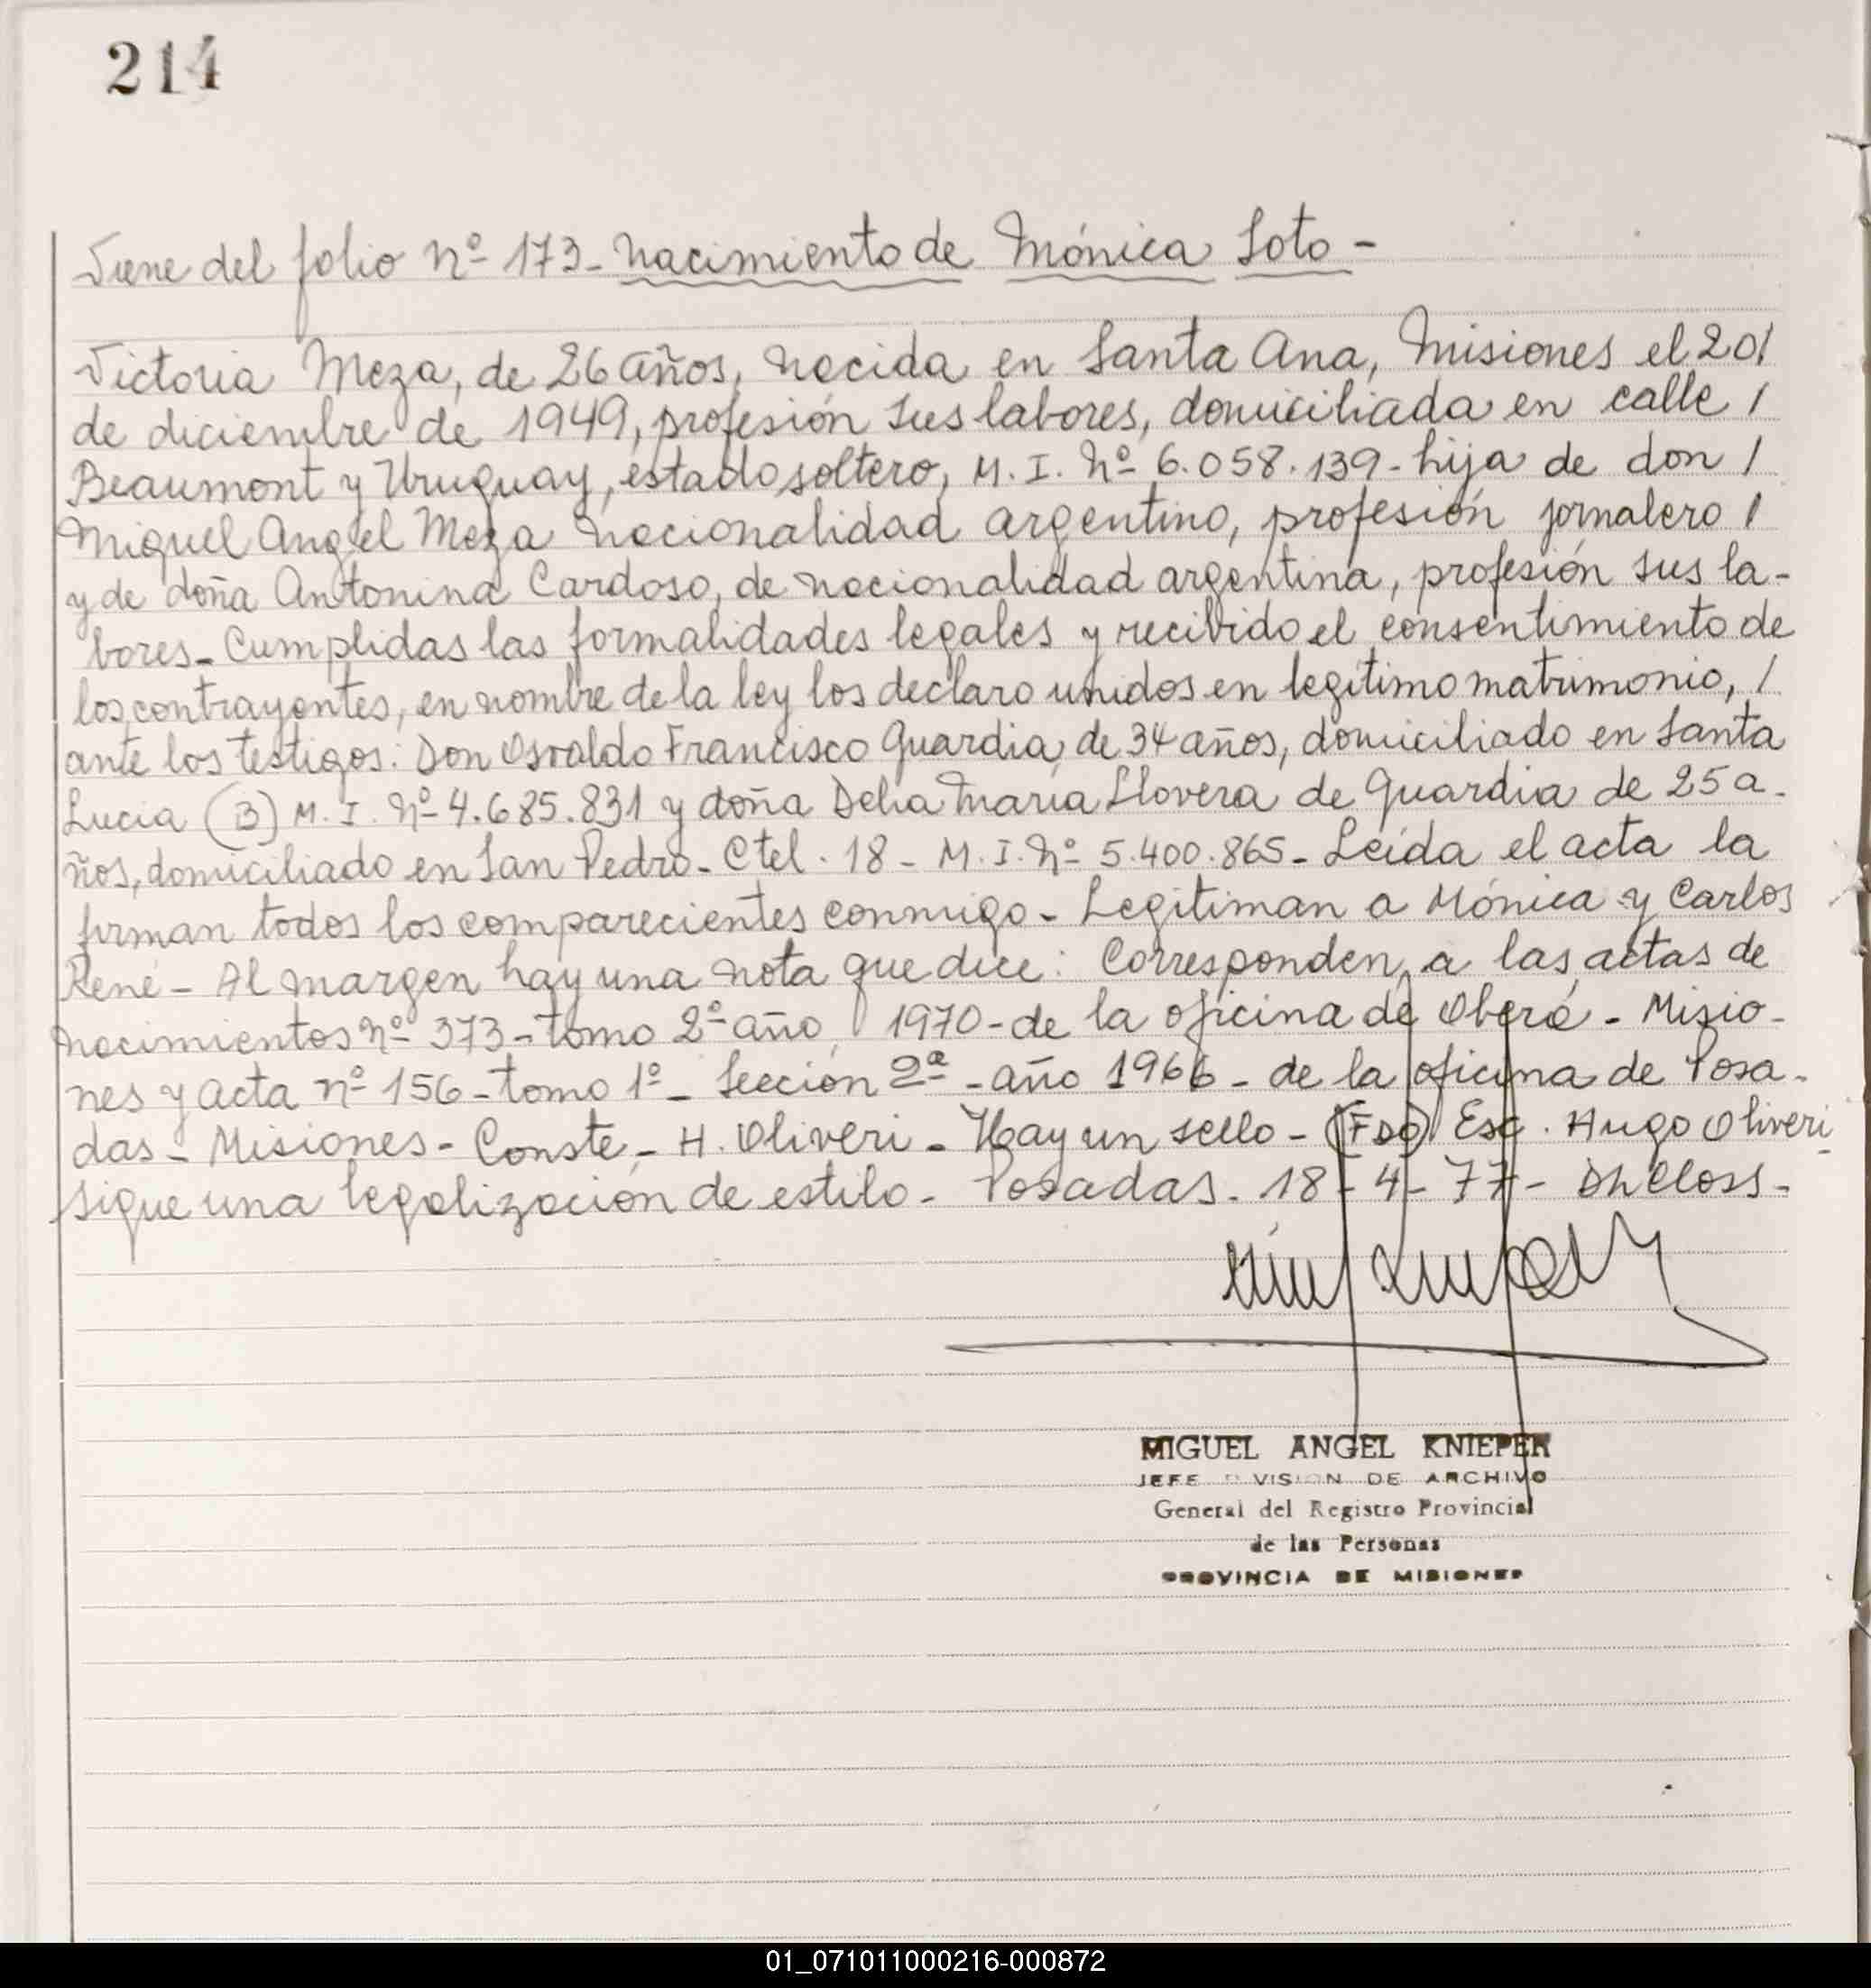 214
Viene del folio nº 173 - Nacimiento de Mónica Soto -
Victoria Meza, de 26 años, nacida en Santa Ana, Misiones el 20/
de diciembre de 1949, profesión sus labores, domiciliada en calle /
Beaumont y Uruguay, estado soltero, M. I. Nº 6.058.139 - hija de don /
Miguel Angel Meza nacionalidad argentino, profesión jornalero /
y de doña Antonina Cardoso, de nacionalidad argentina, profesión sus la-
bores - Cumplidas las formalidades legales y recibido el consentimiento de
los contrayentes, en nombre de la ley los declaro unidos en legítimo matrimonio, /
ante los testigos: Don Osvaldo Francisco Guardia, de 34 años, domiciliado en Santa
Lucia (B) M. I. Nº 4.685.831 y doña Delia María Llovera de Guardia de 25 a-
ños, domiciliado en San Pedro - Ctel. 18 - M. I. Nº 5.400.865 - Leída el acta la
firman todos los comparecientes conmigo - Legitiman a Mónica y Carlos
René - Al margen hay una nota que dice: Corresponden a las actas de
nacimientos nº 373 - tomo 2º año 1970 - de la oficina de Oberá - Misio-
nes y acta nº 156 - tomo 1º - Sección 2ª - año 1966 - de la oficina de Posa-
das - Misiones - Conste - H. Oliveri - Hay un sello - (Fdo) Esc. Hugo Oliveri
sigue una legalización de estilo - Posadas - 18 - 4 - 77 -
MIGUEL ANGEL KNIEPER
JEFE DIVISION DE ARCHIVO
General del Registro Provincial
de las Personas
PROVINCIA DE MISIONES
01_071011000216-000872